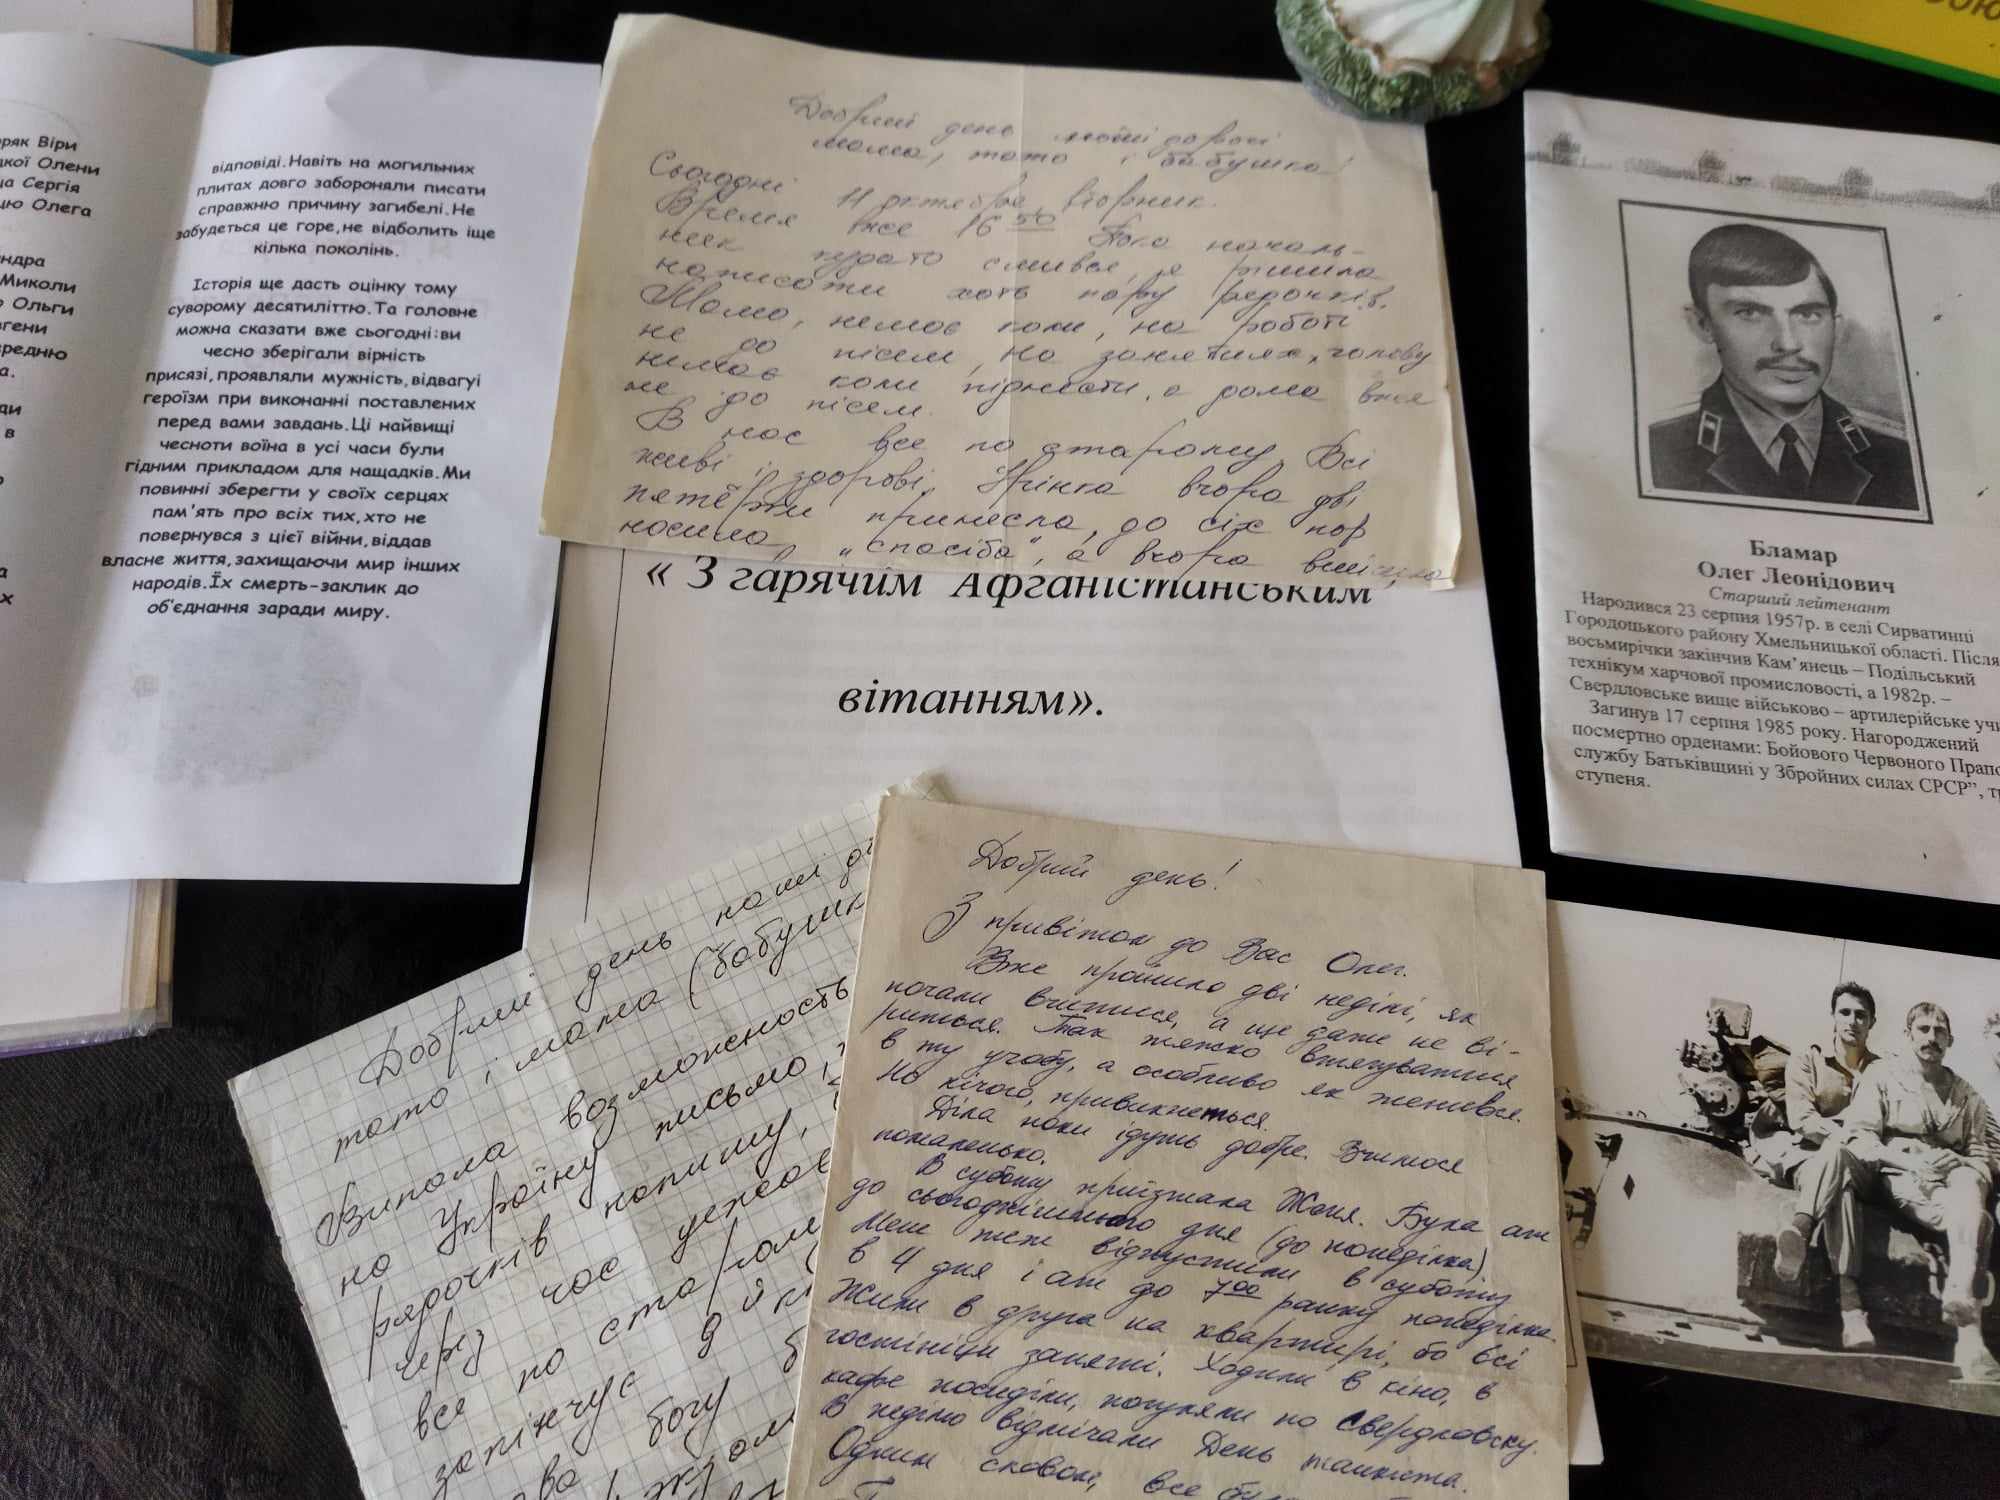 ряк Віри
кої Олени
ца Сергія
цю Олега
ндра
Миколи
Ольги
вгени
ередню
а.
ди
в
а
х
відповіді.Навіть на могильних
плитах довго забороняли писати
справжню причину загибелі.Не
забудеться це горе,не відболить іще
кілька поколінь.
Історія ще дасть оцінку тому
суворому десятиліттю.Та головне
можна сказати вже сьогодні:ви
чесно зберігали вірність
присязі,проявляли мужність,відвагуі
героїзм при виконанні поставлених
перед вами завдань.Ці найвищі
чесноти воїна в усі часи були
гідним прикладом для нащадків.Ми
повинні зберегти у своїх серцях
пам'ять про всіх тих,хто не
повернувся з цієї війни,віддав
власне життя,захищаючи мир інших
народів.Їх смерть-заклик до
об'єднання заради миру.
Добрий день мої дорогі
мама, тато і бабушка!
Сьогодні 11 октября, вторник.
Время вже 16 50 Поки началь-
ник кудато смився, я рішила
написати хоть пару рядочків.
Мамо, немає коли, на роботі
не до писем, на занятиях голову
немає коли піднести, а дома вже
не до писем.
В нас все по старому. Всі
живі і здорові, Юрінка вчора дві
пятёрки принесла, до сіх пор
носила "спасіба", а вчора
« З гарячим Афганістанським
вітанням».
Бламар
Олег Леонідович
Старший лейтенант
Народився 23 серпня 1957р. в селі Сирватинці
Городоцького району Хмельницької області. Після
восьмирічки закінчив Кам’янець – Подільський
технікум харчової промисловості, а 1982р. –
Свердловське вище військово – артилерійське учи
Загинув 17 серпня 1985 року. Нагороджений
посмертно орденами: Бойового Червоного Прапо
службу Батьківщині у Збройних силах СРСР”, тр
ступеня.
Добрий день наші до
тато і мама (бабушк
Випала возможность
на Україну письмо,
рядочків напишу,
через час уежає
все по старом
запінчує 9 й к
ва богу б
Добрий день!
З привітом до Вас Олег.
Вже пройшло дві неділі, як
почали вчитися, а ще даже не ві-
риться. Так тяжко втягуватися
в ту учобу, а особливо як женився.
Но нічого, привикнеться.
Діла поки ідуть добре. Вчимося
помаленько.
В суботу приїзжала Женя. Була аж
до сьогоднішнього дня (до понеділка).
Мене теж відпустили в суботу
в 4 дня і аж до 7 00 ранку понеділка.
Жили в друга на квартирі, бо всі
гостініци заняті. Ходили в кіно, в
кафе посиділи, погуляли по Свердловску.
В неділю відмічали День танкиста.
Одним словом, все бул